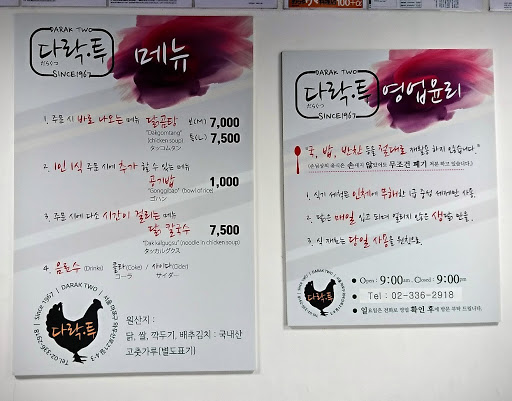 DARAK TWO
다락·투
だらくつ
SINCE1967
메뉴
1. 주문 시 바로 나오는 메뉴 닭곰탕 보(M) 7,000
"Dakgomtang"
(chicken soup) 특(L) 7,500
タッコムタン
2. 1인 1식 주문 시에 추가 할 수 있는 메뉴
공기밥 1,000
"Gonggibap" (bowl of rice)
ゴハン
3. 주문 시에 다소 시간이 걸리는 메뉴
닭 칼국수 7,500
"Dak kalgugsu" (noodle in chicken soup)
タッカルグクス
4. 음료수 (Drinks) 콜라 (Coke) / 사이다 (Cider)
コーラ サイダー
Since 1967 | DARAK TWO
다락·투
Tel. 02-336-2918
원산지 :
닭, 쌀, 깍두기, 배추김치 : 국내산
고춧가루(별도표기)
DARAK TWO
다락·투
だらくつ
SINCE1967
영업윤리
"국, 밥, 반찬 등을 절대로 재활용 하지 않습니다."
1. 식기 세척는 인체에 무해한 1급 중성 세제만 사용.
2. 닭은 매일 입고 되며 얼리지 않은 생닭만을.
3. 식 재료는 당일 사용을 원칙으로.
• Open : 9:00am. Closed : 9:00pm
• Tel : 02-336-2918
• 일요일은 전화로 영업 확인 후에 방문 부탁 드립니다.
DARAK TWO
Since 1967
다락·투